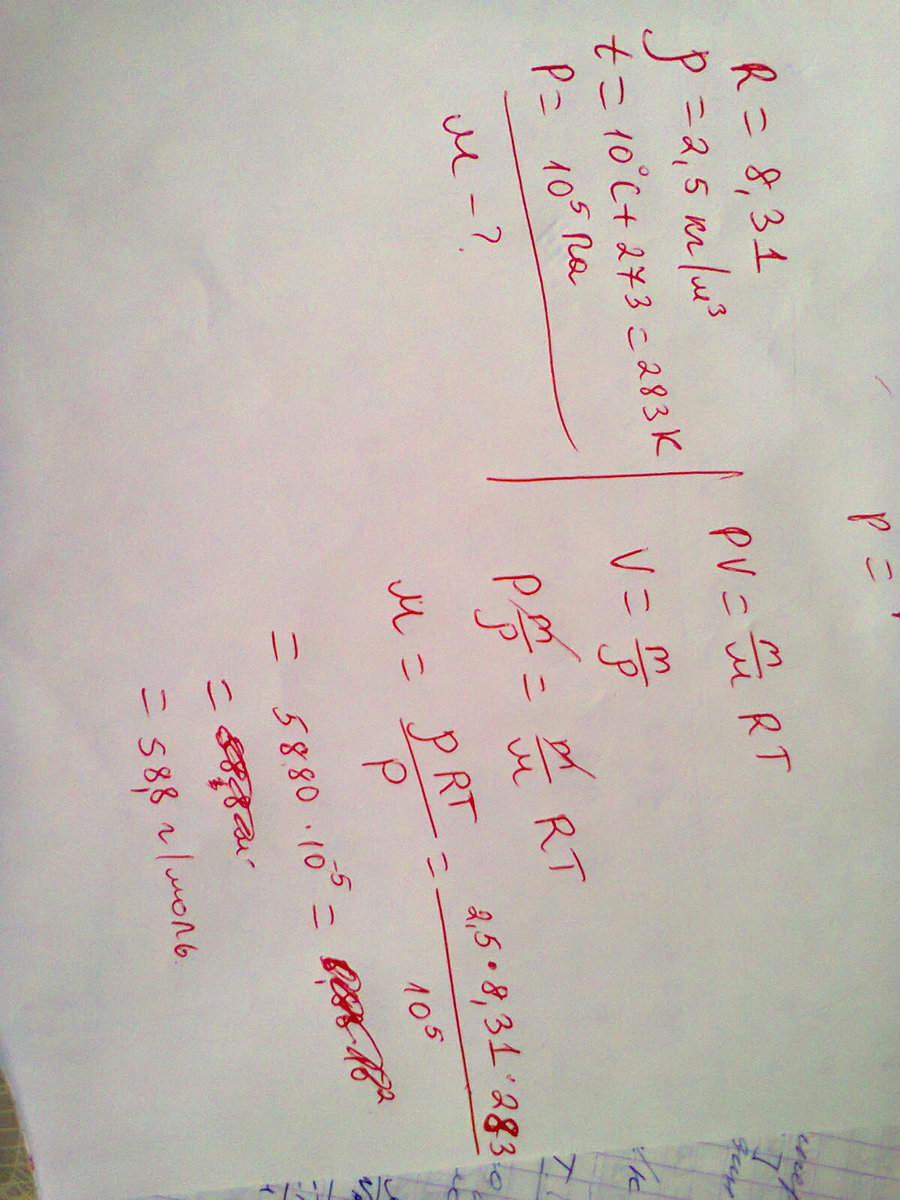 P =
R = 8,31
ρ = 2,5 кг/м³
t = 10°C + 273 = 283K
P = 10⁵ Па
M - ?
PV = m/M RT
V = m/ρ
P m/ρ = m/M RT
M = ρRT/P = 2,5·8,31·283/10⁵
= 5880·10⁻⁵ =
=
= 58,8 г/моль.